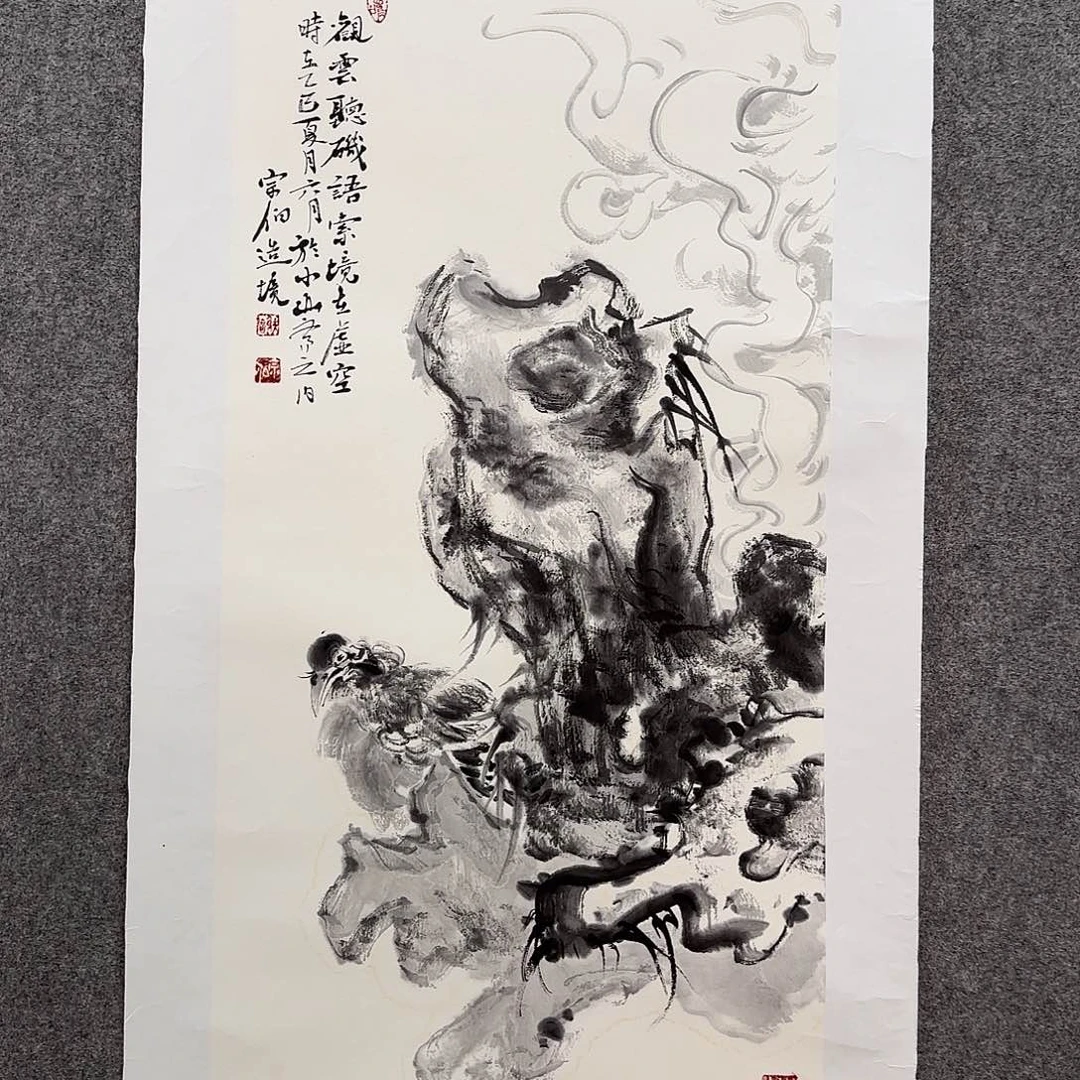 觀雲聽磯語索境在虛空
時在乙巳夏月六月於小山齋之内
宗伯造境